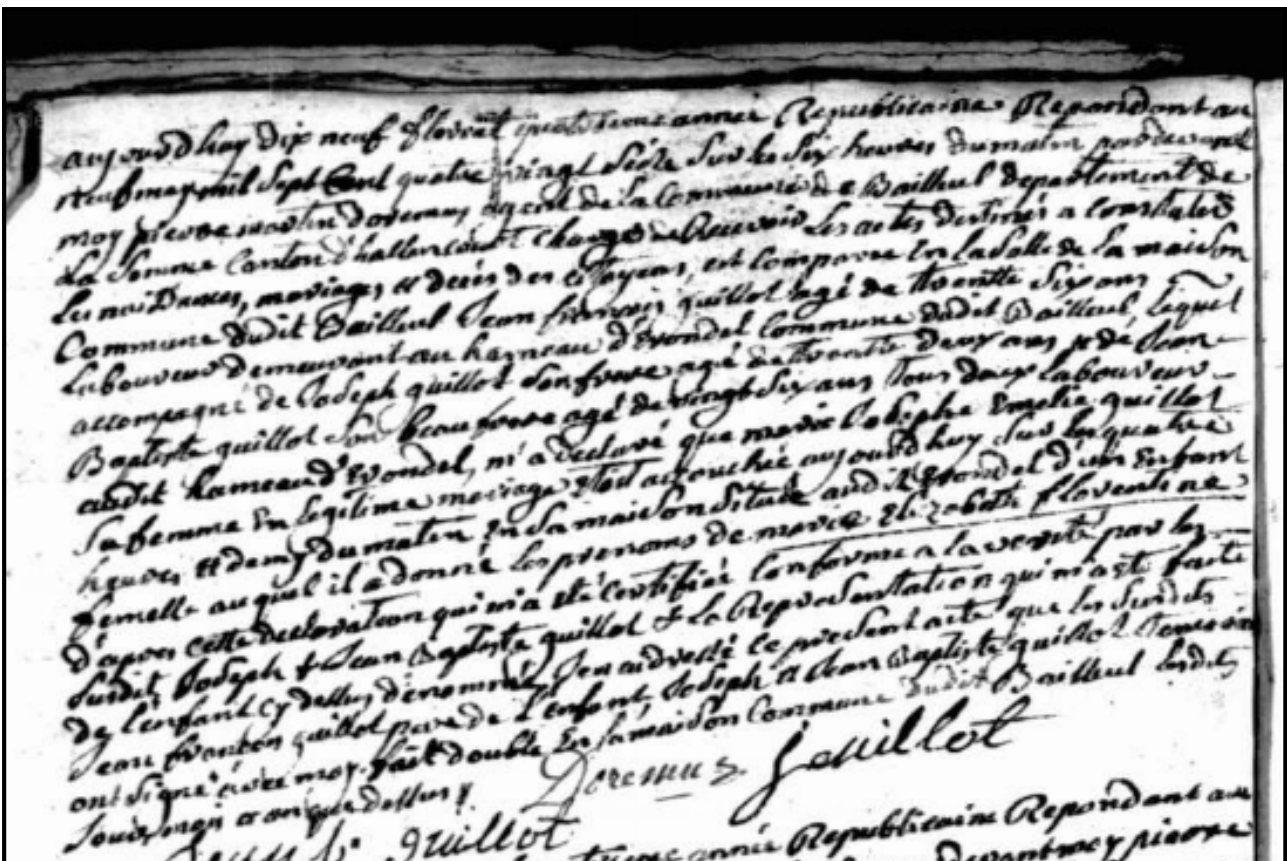 aujourd'huy dix neuf floreal quatrieme année Republicaine Repondant au
neuf may mil sept Cent quatre vingt seize sur les six heures du matin pardevant
moy pierre martin doremus agent de la Commune de Bailleul departement de
La Somme Canton d'hallencourt chargé de Recevoir Les actes destinés a constater
Les naissances, mariages et décés des citoyens, est comparu En la Salle de la maison
Commune dudit Bailleul Jean françois quillot agé de trente six ans
Laboureur demeurant au hameau d'Erondel commune dudit Bailleul, lequel
accompagné de Joseph quillot Son frere agé de trente deux ans et de Jean
Baptiste quillot Son beau frere agé de vingt six ans tous deux laboureur
audit hameau d'Erondel, m'a declaré que marie Josephe Emelie quillot
Sa femme En legitime mariage etoit accouchée aujourd'huy sur les quatre
heures et demy du matin En Sa maison située audit Erondel d'un Enfant
femelle auquel il a donné les prenoms de marie Elizabeth florentine
d'apres cette declaration qui m'a eté certifiée Conforme a la verité par les
Susdits Joseph & Jean Baptiste quillot & la Representation qui m'a eté faite
de l'enfant cy dessus denommé, J'en ai dressé le present acte que les Susdits
Jean françois quillot pere de l'enfant, Joseph et Jean Baptiste quillot temoins
ont Signé avec moy. fait double En la maison Commune dudit Bailleul lesdits
Jour, mois et an que dessus
Doremus J quillot
quillot
année Republicaine Repondant au
devant moy pierre